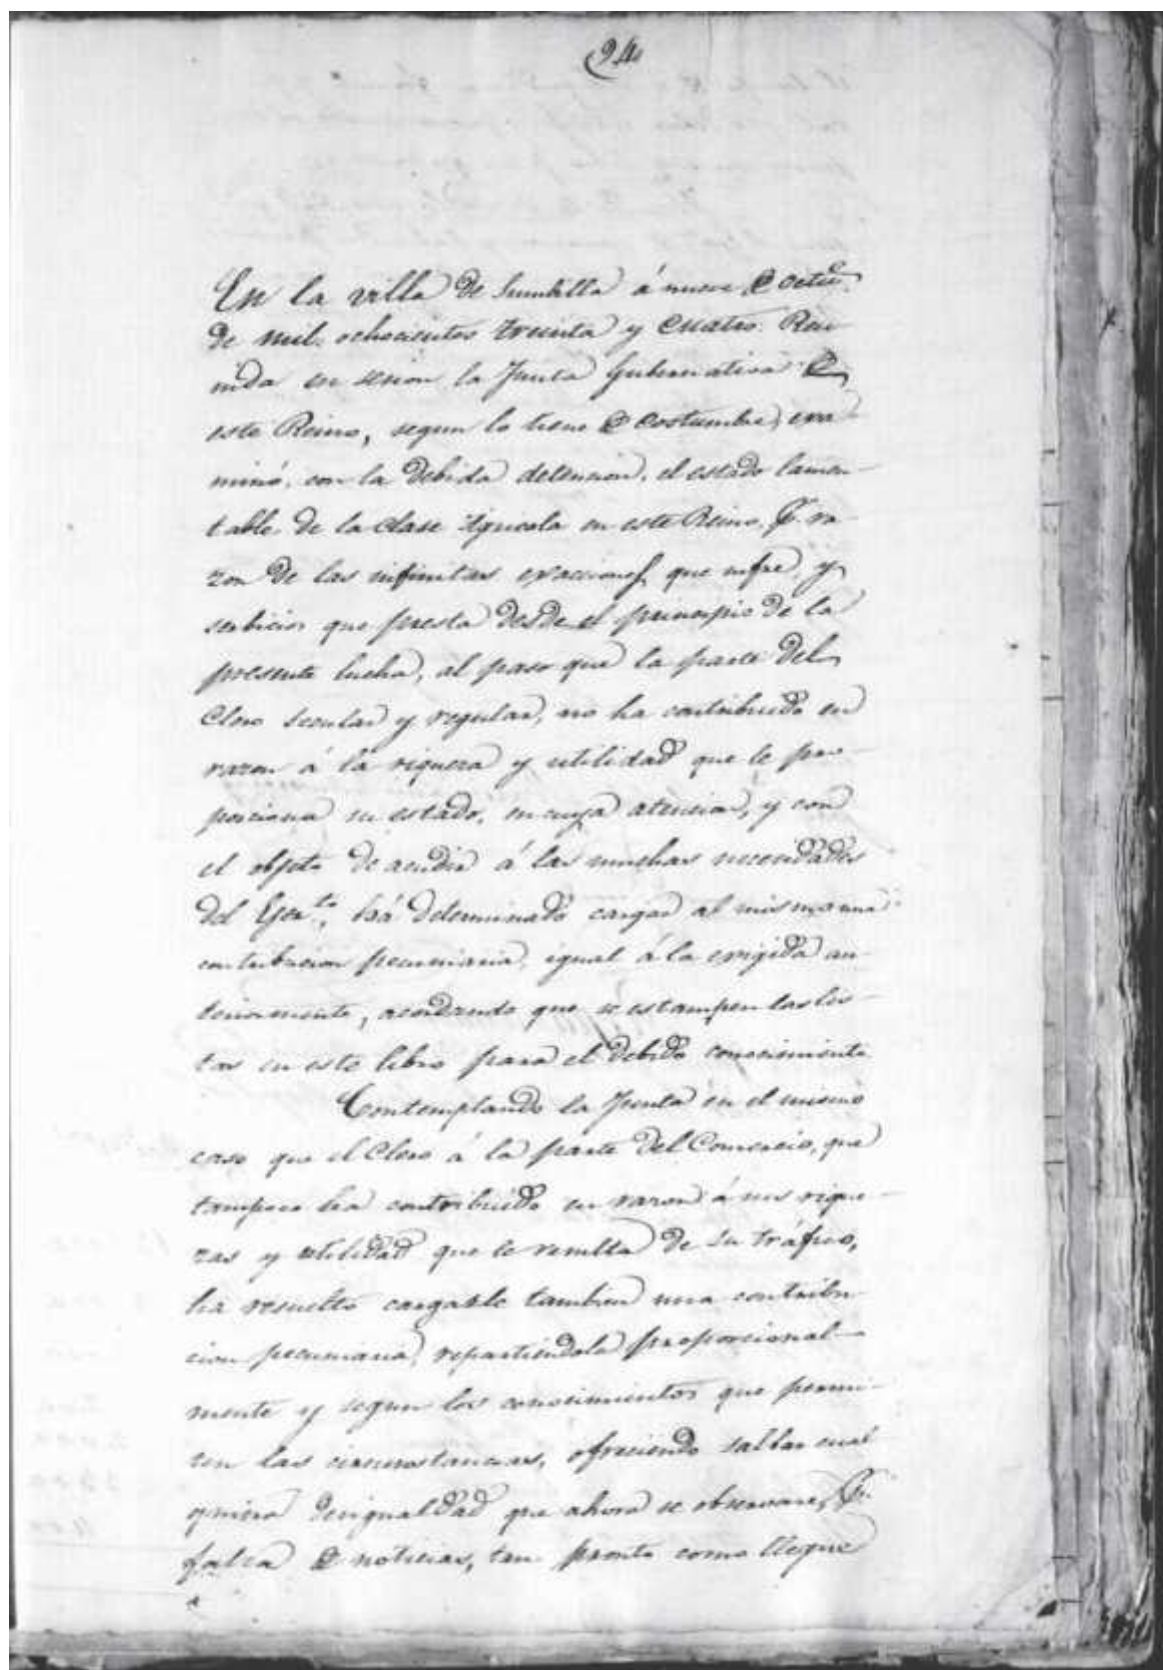 94
En la villa de Sumbilla á nueve de Octue.
de mil ochocientos treinta y cuatro. Reu-
nida en sesion la Junta Gubernativa de
este Reino, segun lo tiene de costumbre, exa-
minó, con la debida detencion, el estado lamen-
table de la clase Agricola en este Reino, Pr. ra-
zon de las infinitas exacciones que sufre, y
serbicios que presta desde el principio de la
presente lucha, al paso que la parte del
Clero secular y regular, no ha contribuido en
razon á la riqueza y utilidad que le pro-
porciona su estado, en cuya atencion, y con
el objeto de acudir á las muchas necesidades
del Egerto, há determinado cargar al mismo una
contribucion pecuniaria, igual á la exigida an-
teriormente, acordando que se estampen las lis-
tas en este libro para el debido conocimiento
Contemplando la Junta en el mismo
caso que el Clero á la parte del Comercio, que
tampoco ha contribuido en razon á sus rique-
zas y utilidad que le resulta de su tráfico,
ha resuelto cargarle tambien una contribu-
cion pecuniaria, repartiendola proporcional-
mente y segun los conocimientos que permi-
ten las circunstancias, ofreciendo salbar cual
quiera desigualdad que ahora se observare, Pr.
falta de noticias, tan pronto como llegue